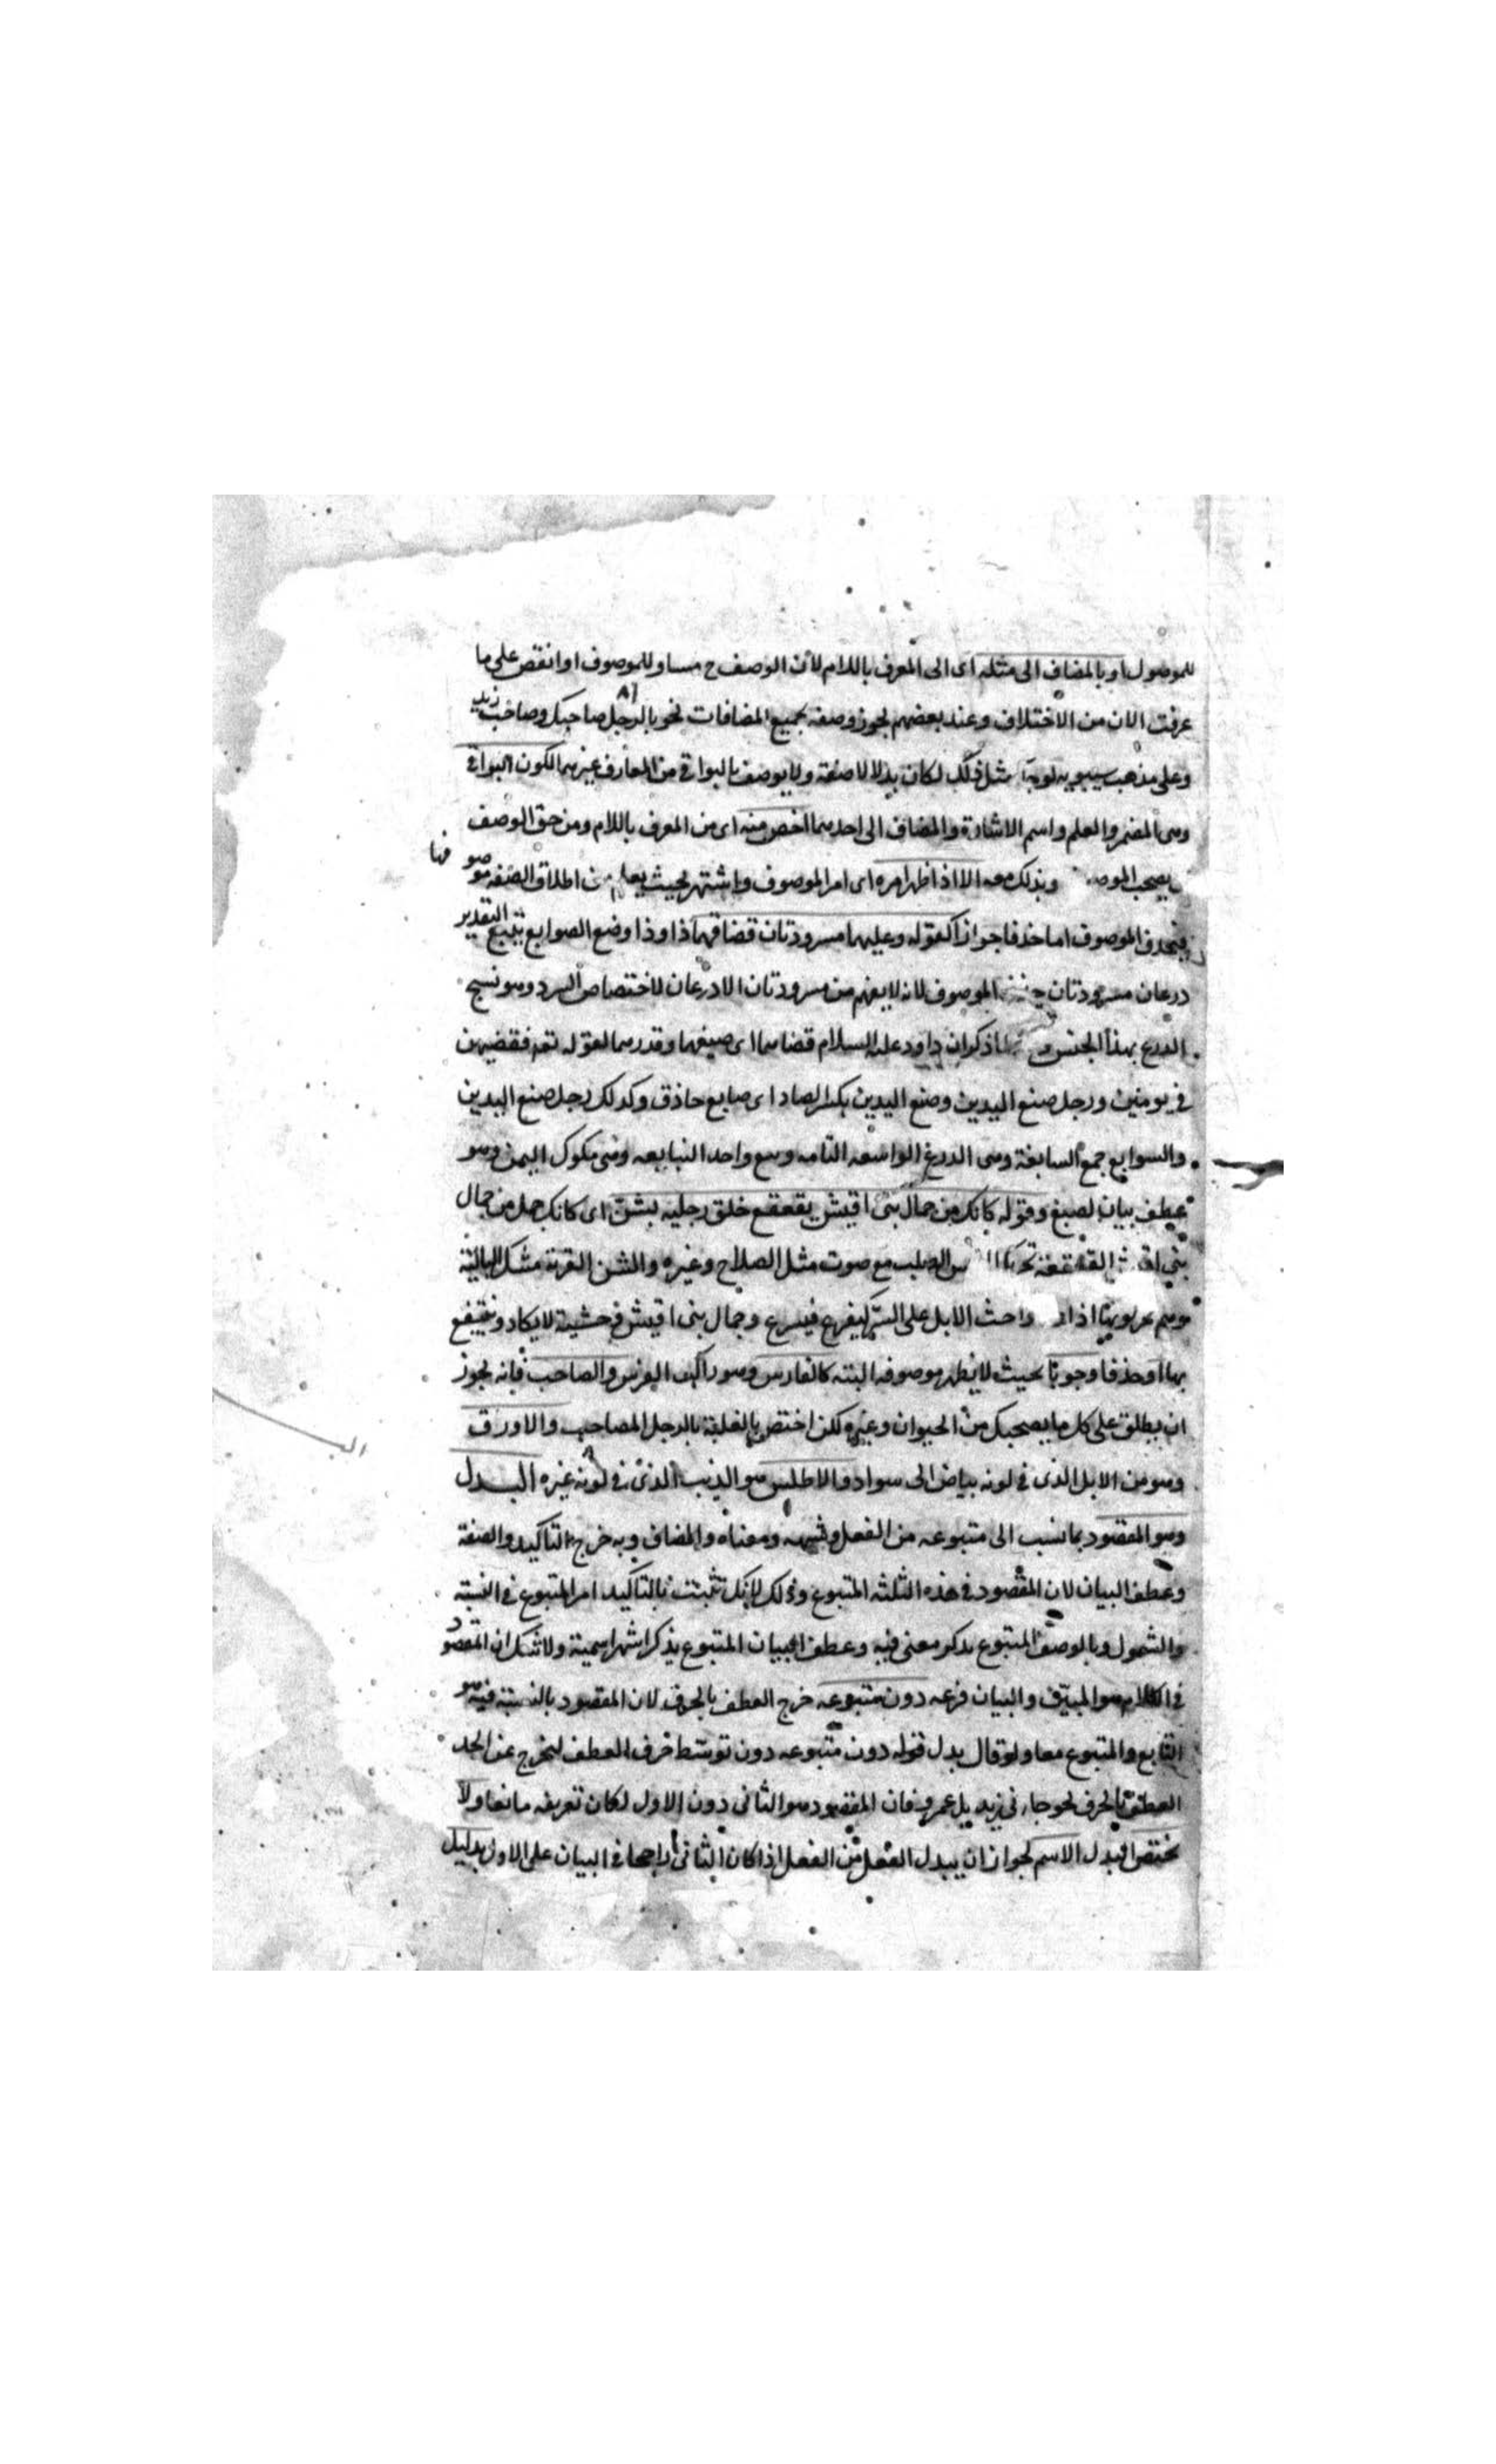 للموصول او بالمضاف الى مثله اى الى المعرف باللام لان الوصف ح مساو للموصوف او انقص على ما
عرفت الان من الاختلاف وعند بعضهم يجوز وصفه بجميع المضافات نحو بالرجل صاحبك وصاحب زيد
وعلى مذهب سيبويه لو جآ مثل ذلك لكان بدلا لا صفة ولا يوصف بالبواقى من المعارف غيرهما لكون البواقى
وهى المضمر والعلم واسم الاشارة والمضاف الى احدهما اخص منه اى من المعرف باللام ومن حق الوصف
يصحب الموصوف ويذكر معه الا اذا ظهر امره اى امر الموصوف واشتهر بحيث يعلم من اطلاق الصفة موصوفها
فيحذف الموصوف اما حذفا جوازا كقوله وعليهما مسرودتان قضاهما داود اوصنع السوابغ تبع التقدير
درعان مسرودتان الموصوف لانه لا يفهم من مسرودتان الا درعان لاختصاص السرد وهو نسج
الدرع بهذا الجنس ذكر ان داود عليه السلام قضاهما اى صنعهما وقدرهما لقوله تعه فقضيهن
فى يومين ورجل صنع اليدين وصنع اليدين بكسر الصاد اى صانع حاذق وكذلك رجل صنع اليدين
والسوابغ جمع السابغة وهى الدرع الواسعه التامه وتبع واحد التبابعه وهى ملوك اليمن وهو
عطف بيان لصنع وقوله كانك من جمال بنى اقيش يقعقع خلف رجليه بشن اى كانك جمل من جمال
بنى اقيش القعقعة الصلب مع صوت مثل السلاح وغيره والشن القربة البالية
وهم واحث الابل على السير ليفزع فيسرع وجمال بنى اقيش وحشية لا يكاد ينتفع
بها او حذفا وجوبا بحيث لا يظهر موصوفه البته كالفارس وهو راكب الفرس والصاحب فانه يجوز
ان يطلق على كل ما يصحبك من الحيوان وغيره لكن اختص بالغلبة بالرجل المصاحب والاورق
وهو من الابل الذى فى لونه بياض الى سواد والاطلس هو الذيب الذى فى لونه غبره البدل
وهو المقصود بما نسب الى متبوعه من الفعل وشبهه ومعناه والمضاف وبه خرج التاكيد والصفة
وعطف البيان لان المقصود فى هذه الثلثه المتبوع وذلك لانك تثبت بالتاكيد امر المتبوع فى النسبة
والشمول وبالوصف المتبوع بذكر معنى فيه وعطف البيان المتبوع بذكر اشهر اسميه ولا شك ان المقصود
فى الكلام هو المبيّن والبيان فرعه دون متبوعه خرج العطف بالحرف لان المقصود بالنسبة فيه هو
التابع والمتبوع معا ولو قال بدل قوله دون متبوعه دون توسّط حرف العطف ليخرج عن الحد
العطف بالحرف نحو جاءنى زيد بل عمرو فان المقصود هو الثانى دون الاول لكان تعريفه مانعا ولا
يختص البدل الاسم لجواز ان يبدل الفعل من الفعل اذا كان الثانى راجحا فى البيان على الاول بدليل